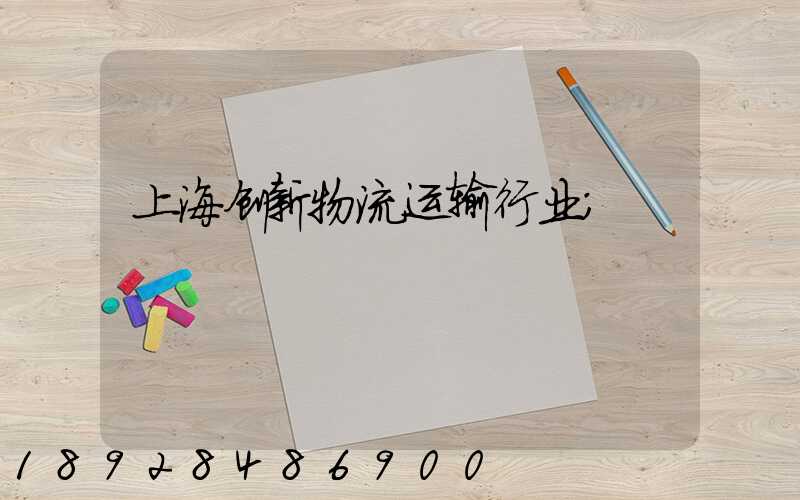 上海创新物流运输行业;
18928486900